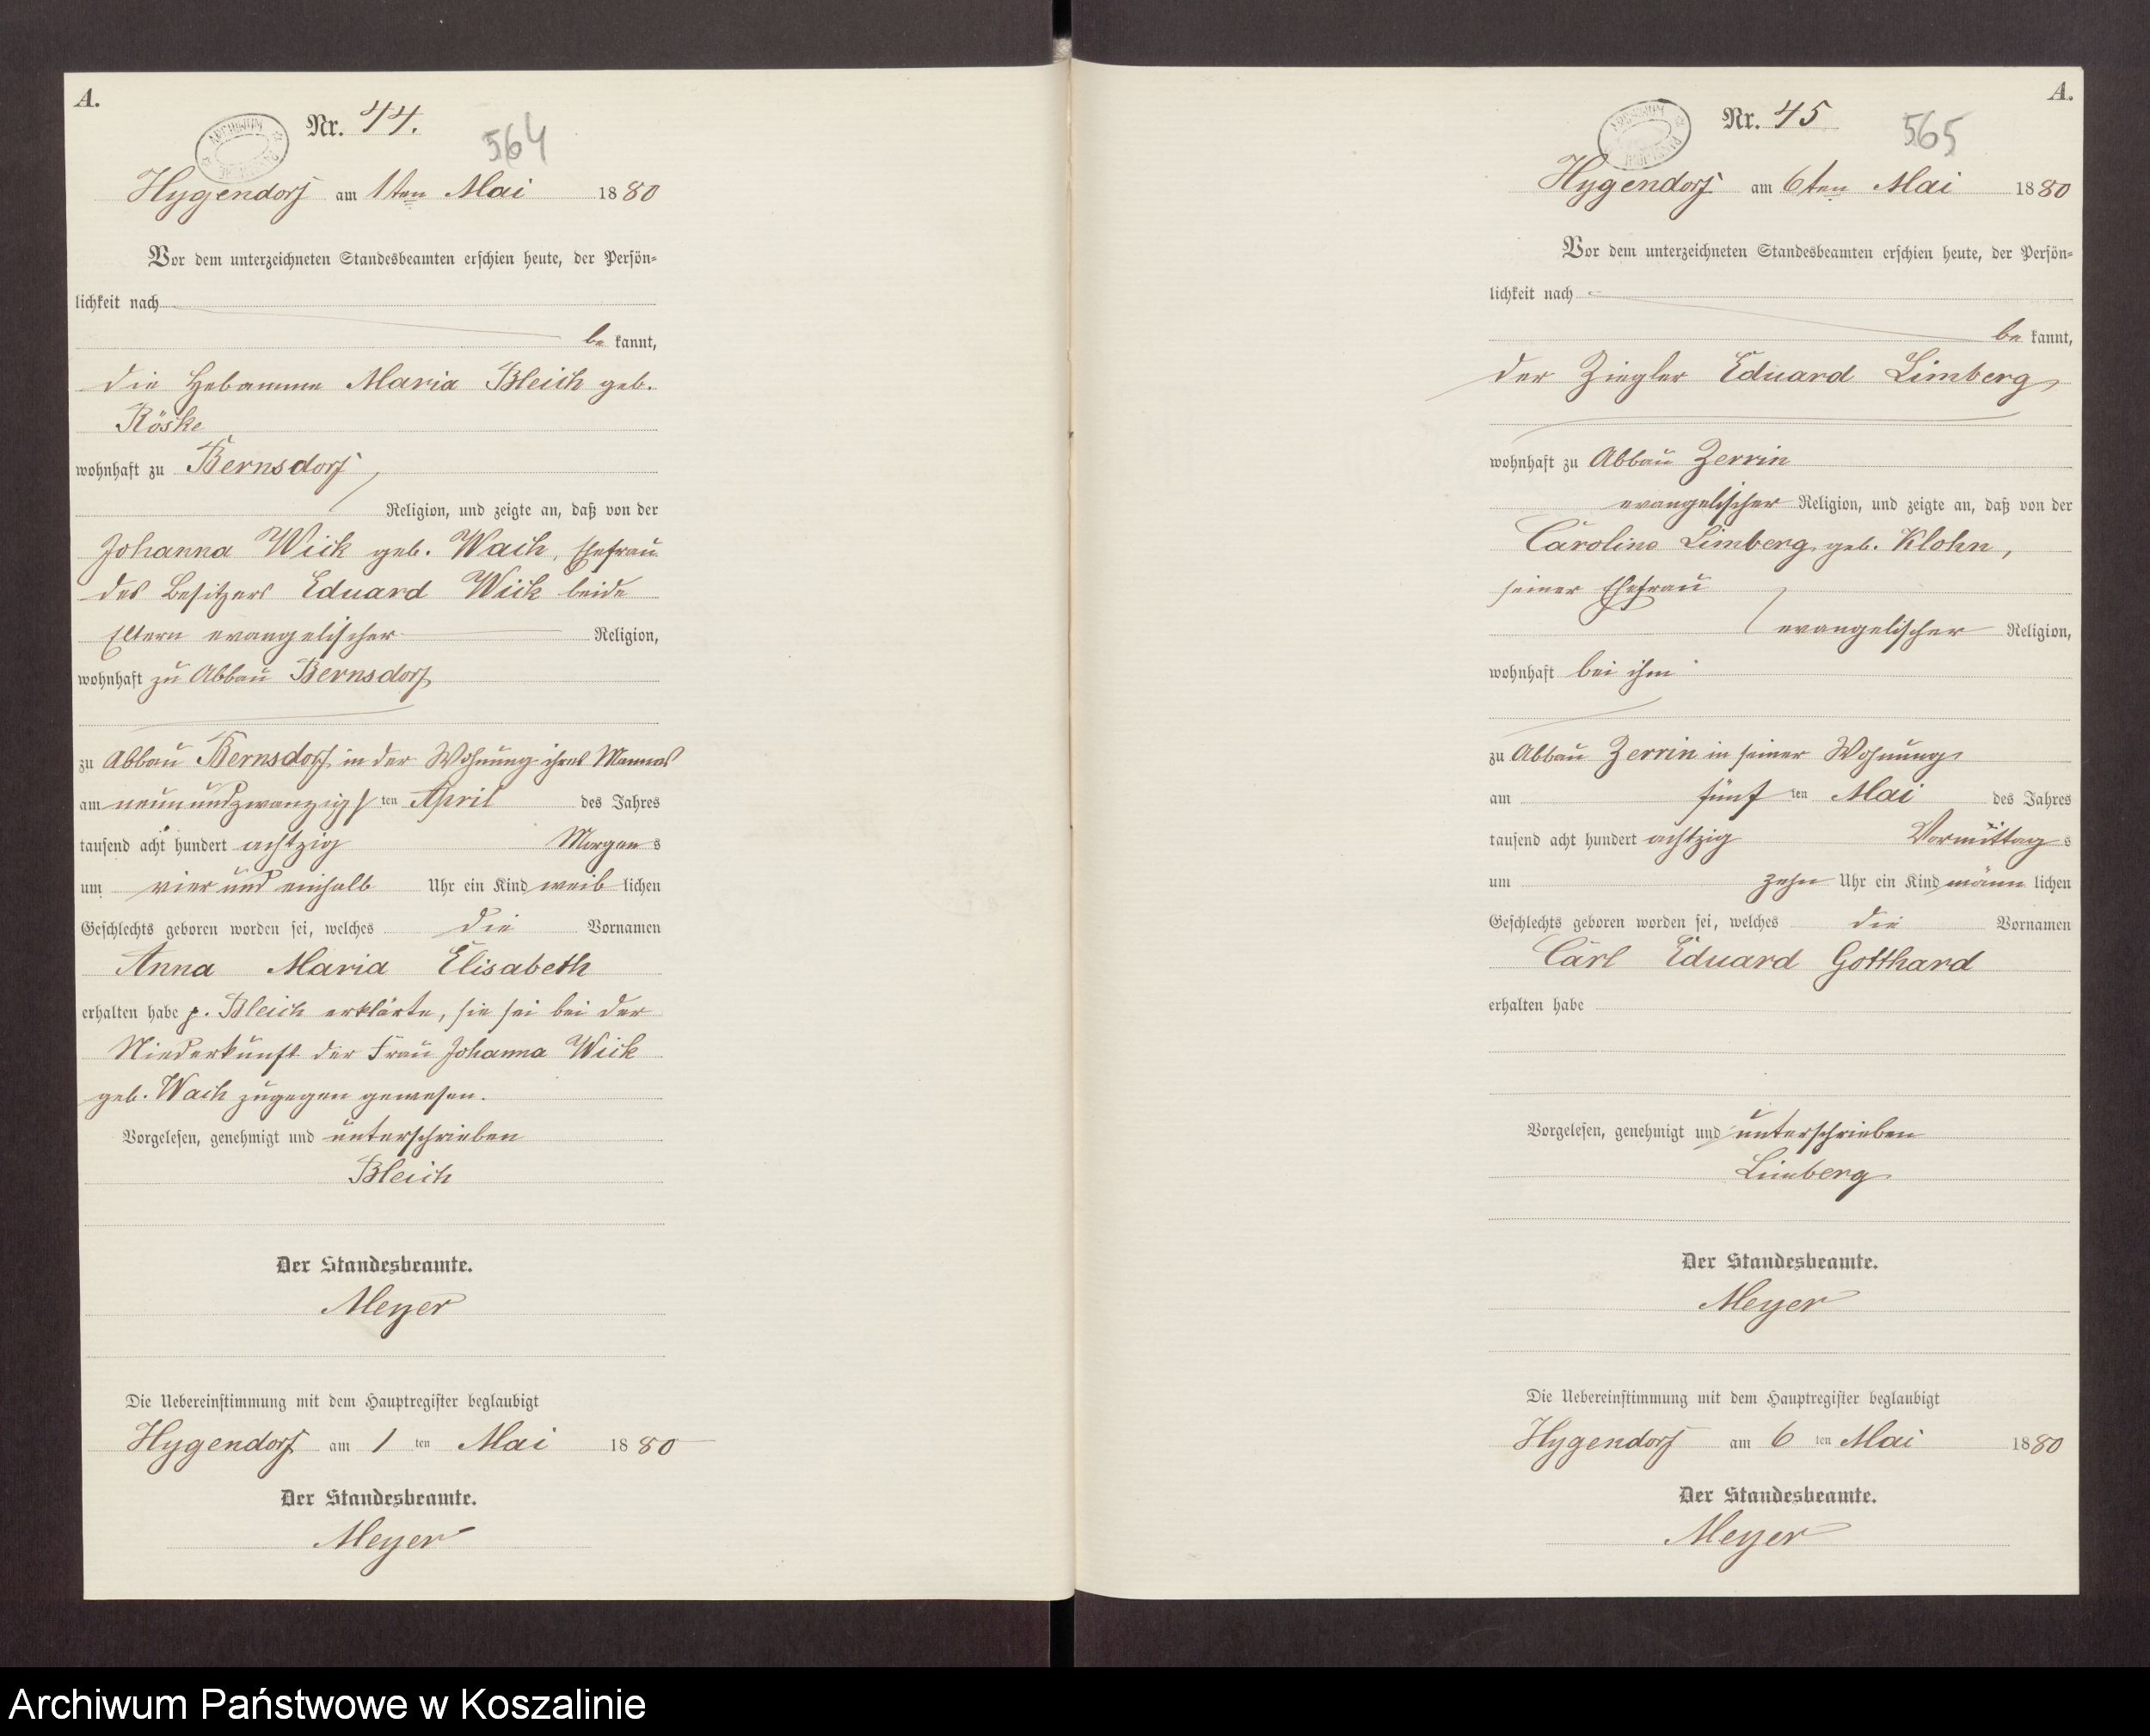 A.
Nr. 44.
564
Hygendorf am 1ten Mai 1880
Vor dem unterzeichneten Standesbeamten erschien heute, der Persön-
lichkeit nach
be kannt,
die Hebamme Maria Bleich geb.
Röske
wohnhaft zu Bernsdorf,
Religion, und zeigte an, daß von der
Johanna Wick geb. Wach, Ehefrau
des Besitzers Eduard Wick beide
Eltern evangelischer Religion,
wohnhaft zu Abbau Bernsdorf
zu Abbau Bernsdorf in der Wohnung ihres Mannes
am neunundzwanzigs ten April des Jahres
tausend acht hundert achtzig Morgen s
um vier und einhalb Uhr ein Kind weib lichen
Geschlechts geboren worden sei, welches die Vornamen
Anna Maria Elisabeth
erhalten habe p. Bleich erklärte, sie sei bei der
Niederkunft der Frau Johanna Wick
geb. Wach zugegen gewesen.
Vorgelesen, genehmigt und unterschrieben
Bleich
Der Standesbeamte.
Meyer
Die Uebereinstimmung mit dem Hauptregister beglaubigt
Hygendorf am 1 ten Mai 1880
Der Standesbeamte.
Meyer
A.
Nr. 45
565
Hygendorf am 6ten Mai 1880
Vor dem unterzeichneten Standesbeamten erschien heute, der Persön-
lichkeit nach
be kannt,
der Ziegler Eduard Limberg
wohnhaft zu Abbau Zerrin
evangelischer Religion, und zeigte an, daß von der
Caroline Limberg geb. Klohn,
seiner Ehefrau
evangelischer Religion,
wohnhaft bei ihm
zu Abbau Zerrin in seiner Wohnung
am fünf ten Mai des Jahres
tausend acht hundert achtzig Vormittag s
um zehn Uhr ein Kind männ lichen
Geschlechts geboren worden sei, welches die Vornamen
Carl Eduard Gotthard
erhalten habe
Vorgelesen, genehmigt und unterschrieben
Limberg
Der Standesbeamte.
Meyer
Die Uebereinstimmung mit dem Hauptregister beglaubigt
Hygendorf am 6 ten Mai 1880
Der Standesbeamte.
Meyer
Archiwum Państwowe w Koszalinie